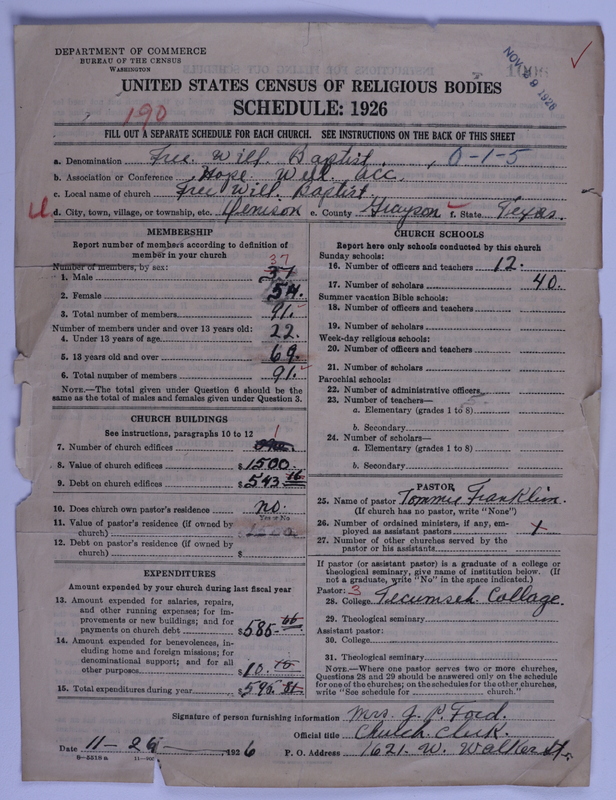 DEPARTMENT OF COMMERCE
BUREAU OF THE CENSUS
WASHINGTON
NOV 29 1926
UNITED STATES CENSUS OF RELIGIOUS BODIES
SCHEDULE: 1926
190
FILL OUT A SEPARATE SCHEDULE FOR EACH CHURCH. SEE INSTRUCTIONS ON THE BACK OF THIS SHEET
a. Denomination Free Will Baptist, 0-1-5
b. Association or Conference Hope Well acc.
c. Local name of church Free Will Baptist
d. City, town, village, or township, etc. Denison e. County Grayson f. State Texas.
MEMBERSHIP
Report number of members according to definition of member in your church
37
Number of members, by sex:
1. Male 37
2. Female 54.
3. Total number of members 91.
Number of members under and over 13 years old:
4. Under 13 years of age 22.
5. 13 years old and over 69.
6. Total number of members 91.
NOTE.—The total given under Question 6 should be the same as the total of males and females given under Question 3.
CHURCH BUILDINGS
See instructions, paragraphs 10 to 12
1
7. Number of church edifices
8. Value of church edifices $1500.
9. Debt on church edifices $543 16
10. Does church own pastor's residence no.
Yes or No
11. Value of pastor's residence (if owned by church) $
12. Debt on pastor's residence (if owned by church) $
EXPENDITURES
Amount expended by your church during last fiscal year
13. Amount expended for salaries, repairs, and other running expenses; for improvements or new buildings; and for payments on church debt $585.
14. Amount expended for benevolences, including home and foreign missions; for denominational support; and for all other purposes $10.
15. Total expenditures during year $595.
CHURCH SCHOOLS
Report here only schools conducted by this church
Sunday schools:
16. Number of officers and teachers 12.
17. Number of scholars 40.
Summer vacation Bible schools:
18. Number of officers and teachers
19. Number of scholars
Week-day religious schools:
20. Number of officers and teachers
21. Number of scholars
Parochial schools:
22. Number of administrative officers
23. Number of teachers—
a. Elementary (grades 1 to 8)
b. Secondary
24. Number of scholars—
a. Elementary (grades 1 to 8)
b. Secondary
PASTOR
25. Name of pastor Tommie Franklin.
(If church has no pastor, write "None")
26. Number of ordained ministers, if any, employed as assistant pastors
27. Number of other churches served by the pastor or his assistants
If pastor (or assistant pastor) is a graduate of a college or theological seminary, give name of institution below. (If not a graduate, write "No" in the space indicated.)
Pastor: 3
28. College Tecumseh Collage.
29. Theological seminary
Assistant pastor:
30. College
31. Theological seminary
NOTE.—Where one pastor serves two or more churches, Questions 28 and 29 should be answered only on the schedule for one of the churches; on the schedules for the other churches, write "See schedule for church."
Signature of person furnishing information Mrs. J. P. Ford.
Official title Church Clerk.
Date 11-29 1926 P. O. Address 1621. W. Walker St.
8-5518 a